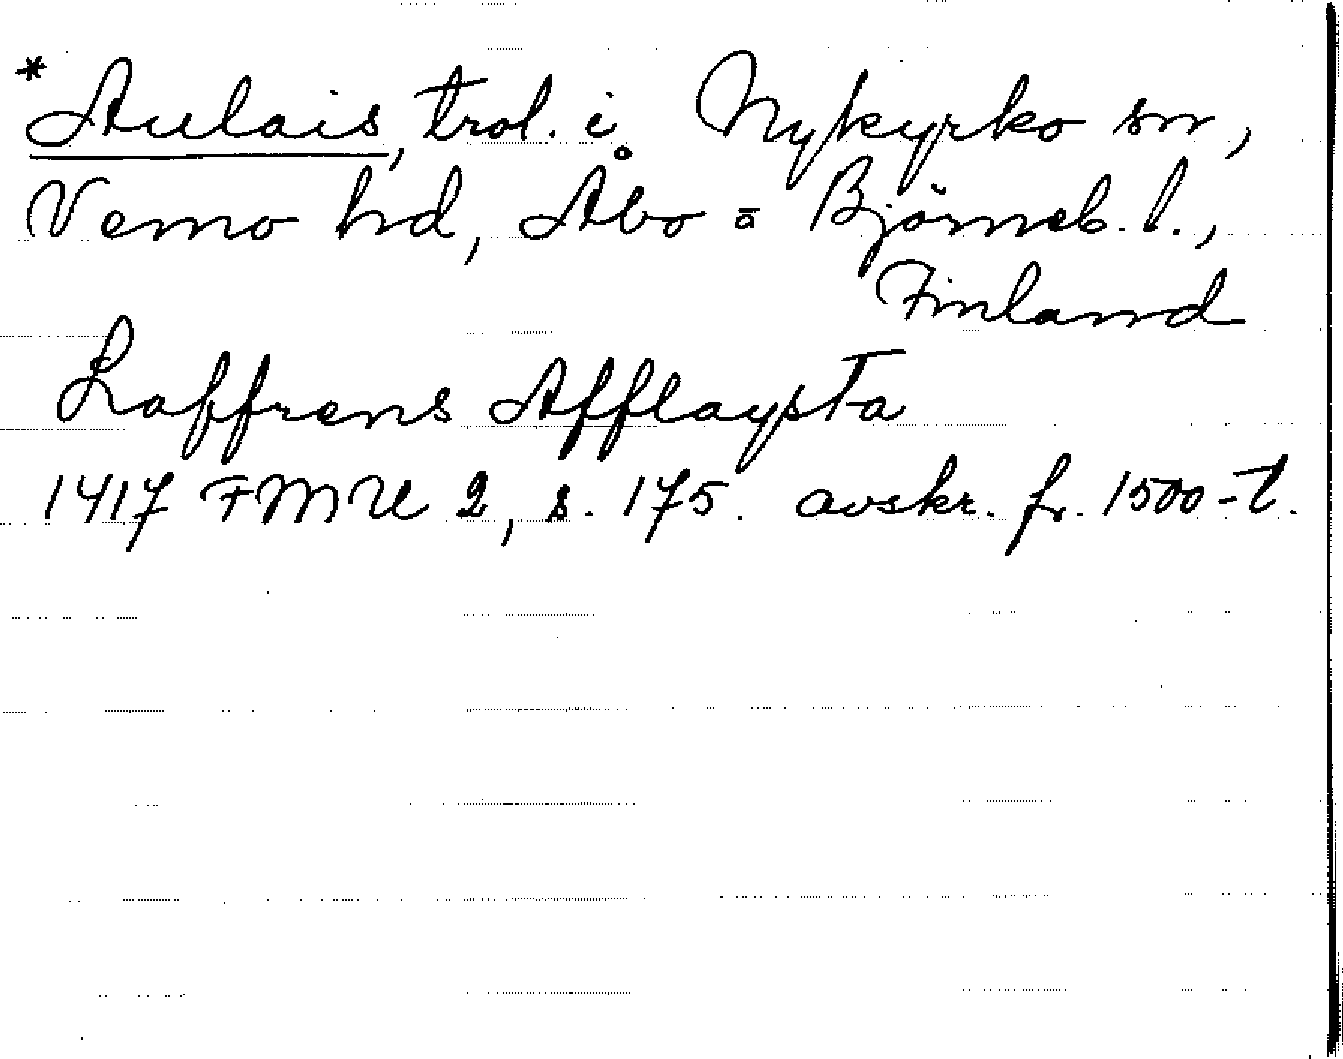 *Aulais, trol. i Nykyrko sn,
Vemo hd, Åbo = Björneb. l.,
Finland
Laffrens Afflaysta
1417 FMU 2, s. 175. avskr. fr. 1500-t.